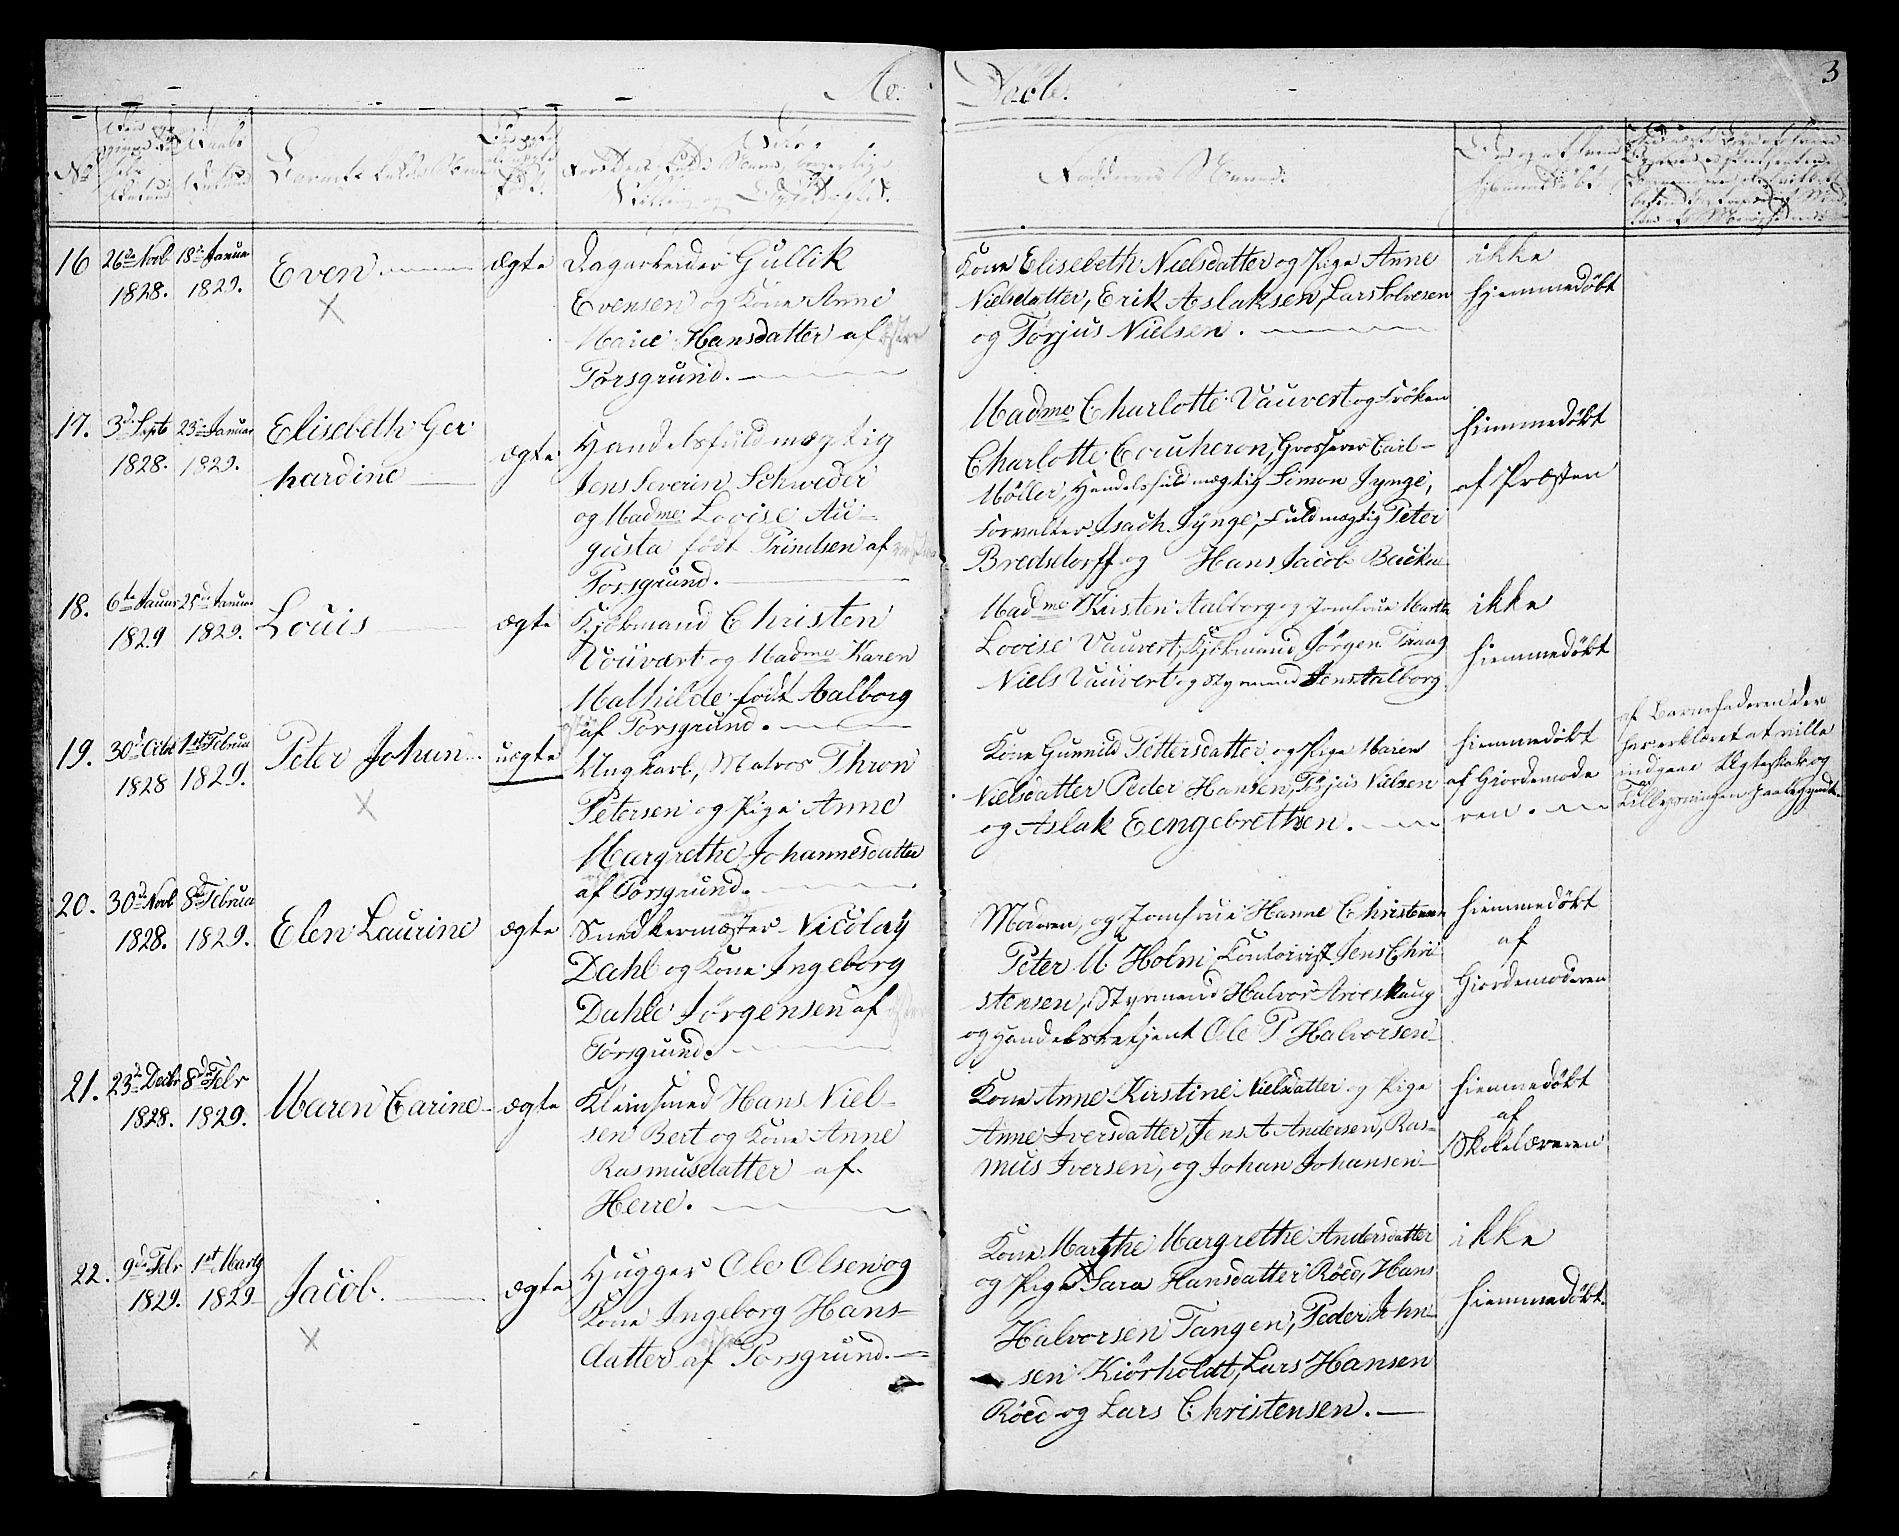 3
Døbte.
No
Barnets fulde Navn
Faddernes Navne.
16 26de Novb 18de Januar Even ægte Dagarbeider Gullik
1828. 1829.
Evensen og Kone Anne
Marie Hansdatter af
Porsgrund.
Kone Elisebeth Nielsdatter og Pige Anne
Nielsdatter, Erik Aslaksen, Lars Solvesen
og Torjus Nielsen.
ikke
hjemmedøbt
17. 3d Septb 23de Januar Elisebeth Ger
1828. 1829. hardine ægte
Handelsfuldmægtig
Jens Severin Schweder
og Madme Lovise Au-
gusta født Prindsen af
Porsgrund.
Madme Charlotte Vauvert og Frøken
Charlotte Coucheron, Grosserer Carl
Møller, Handelsfuldmægtig Simon Jynge,
Forvalter Isach Jynge, Fuldmægtig Peter
Bredsdorff og Hans Jacob Backe
hiemmedøbt
af Præsten
18. 6te Januar 25de Januar Louis ægte
1829 1829.
Kjøbmand Christen
Vouvært og Madme Karen
Mathilde født Aalborg
af Porsgrund.
Madme Kirsten Aalborg og Jomfrue Marthe
Lovise Vauvert, Kjøbmand Jørgen
Niels Vauvert og Styrmand Jens Aalborg
ikke
hiemmedøbt
19. 30d Octbr 1st Februar Peter Johan uægte
1828 1829.
Ungkarl, Matros Thron
Petersen og Pige Anne
Margrethe Johannesdatter
af Porsgrund.
Kone Gunnild Pettersdatter og Pige Maren
Nielsdatter Peder Hansen, Torjus Nielsen
og Aslak Eengebrethsen.
hiemmedøbt
af Giordemode
ren.
af Barnefaderen der
har erklæret at ville
indgaae Ægteskab og
20. 30de Novb 8de Februar Elen Laurine ægte
1828. 1829.
Snedkermester Nicolay
Dahl og Kone Ingeborg
Dahle Jørgensen af
Porsgrund.
Moderen, og Jomfrue Hanne Christensen
Peter M Holm, Contorist Jens Chri
stensen, Styrmand Halvor Aroeskaug
og Handelsbetjent Ole P Halvorsen
hiemmedøbt
af
Giordemoderen
21. 23de Decbr 8de Febr Maren Carine ægte
1828. 1829.
Kleinsmed Hans Niel-
sen Bert og Kone Anne
Rasmusdatter af
Herre.
Kone Anne Kirstine Nielsdatter og Pige
Anne Iversdatter, Jens A Andersen, Ras-
mus Iversen, og Johan Johansen
hiemmedøbt
af
Skolelæreren
22. 9de Febr 1st Marty Jacob. ægte
1829. 1829
Hugger Ole Olsen og
Kone Ingeborg Hans-
datter af Porsgrund.
Kone Marthe Margrethe Andersdatter
og Pige Sara Hansdatter Røed, Hans
Halvorsen Tangen, Peder John-
sen Kiørholdt, Lars Hansen
Røed og Lars Christensen.
ikke
hiemmedøbt.